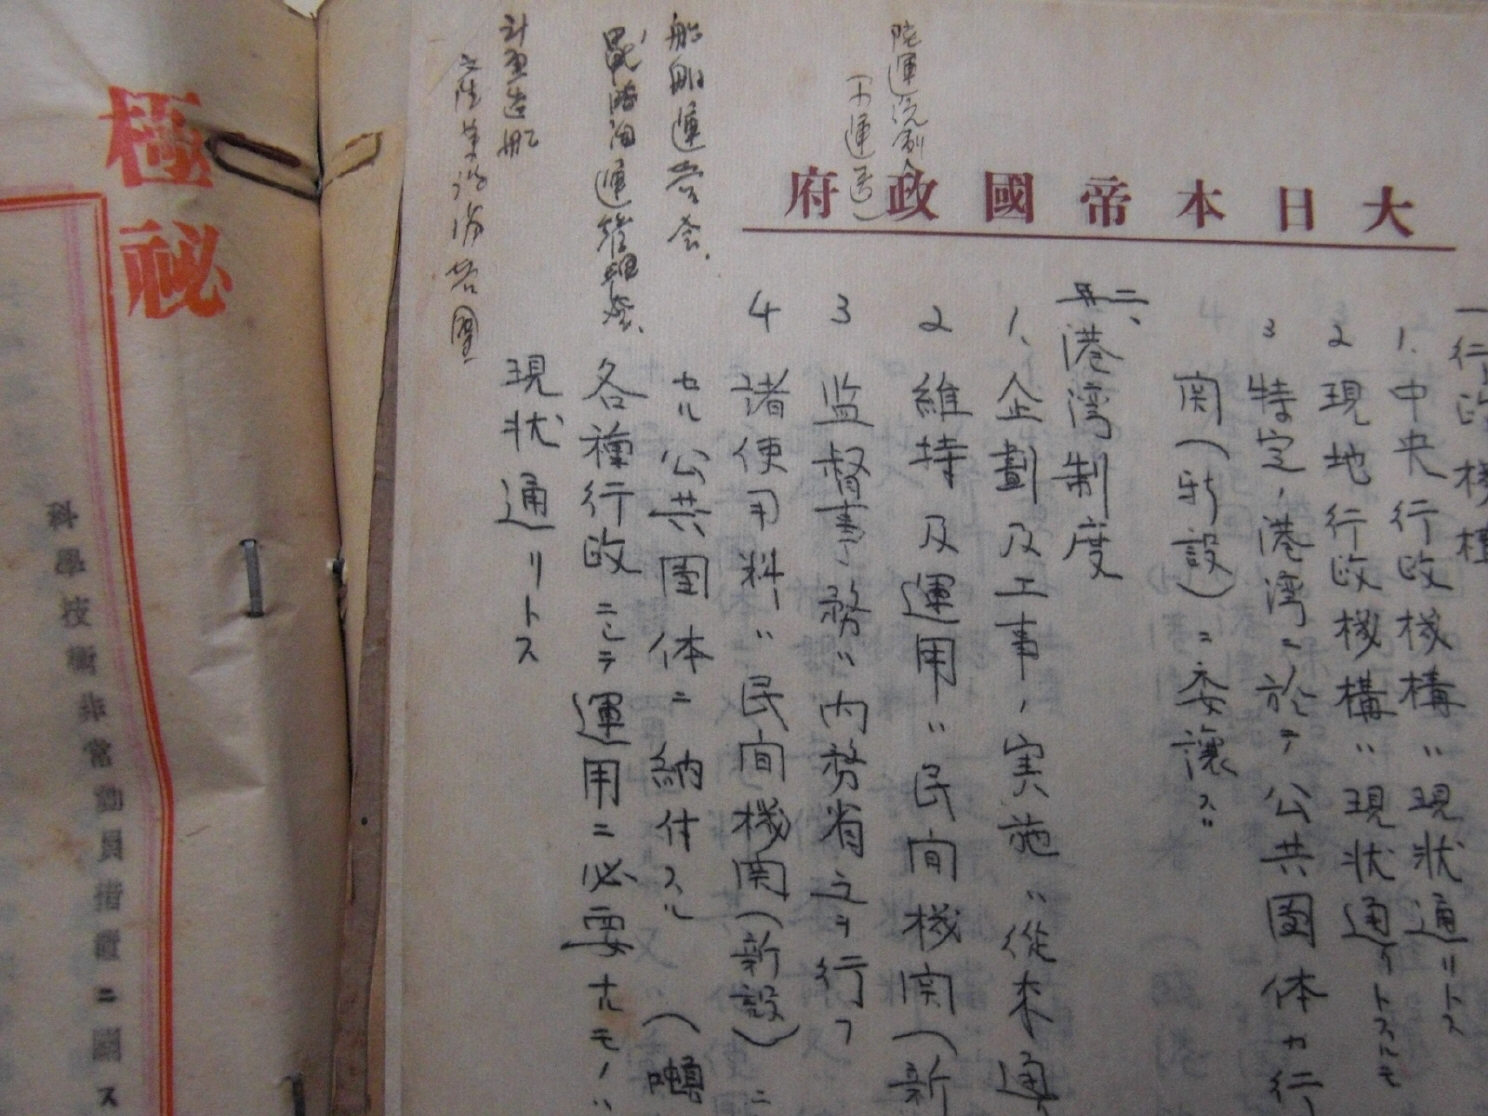 大日本帝國政府
陸運統制会
(日通)
船舶運営会、
計画造船
一行政機構
1、中央行政機構ハ現状通リトス
2 現地行政機構ハ現状通リトスルモ
3 特定ノ港湾ニ於テ公共團体カ行
関(新設)ニ委譲ス
二、港湾制度
1、企劃及工事ノ実施ハ従来通
2 維持及運用ハ民間機関(新
3 監督事務ハ内務省之ヲ行フ
4 諸使用料ハ民間機関(新設)ニ
セル公共團体ニ納付スル
各種行政ニシテ運用ニ必要ナルモノハ
現状通リトス
極秘
科學技術非常動員措置ニ關ス